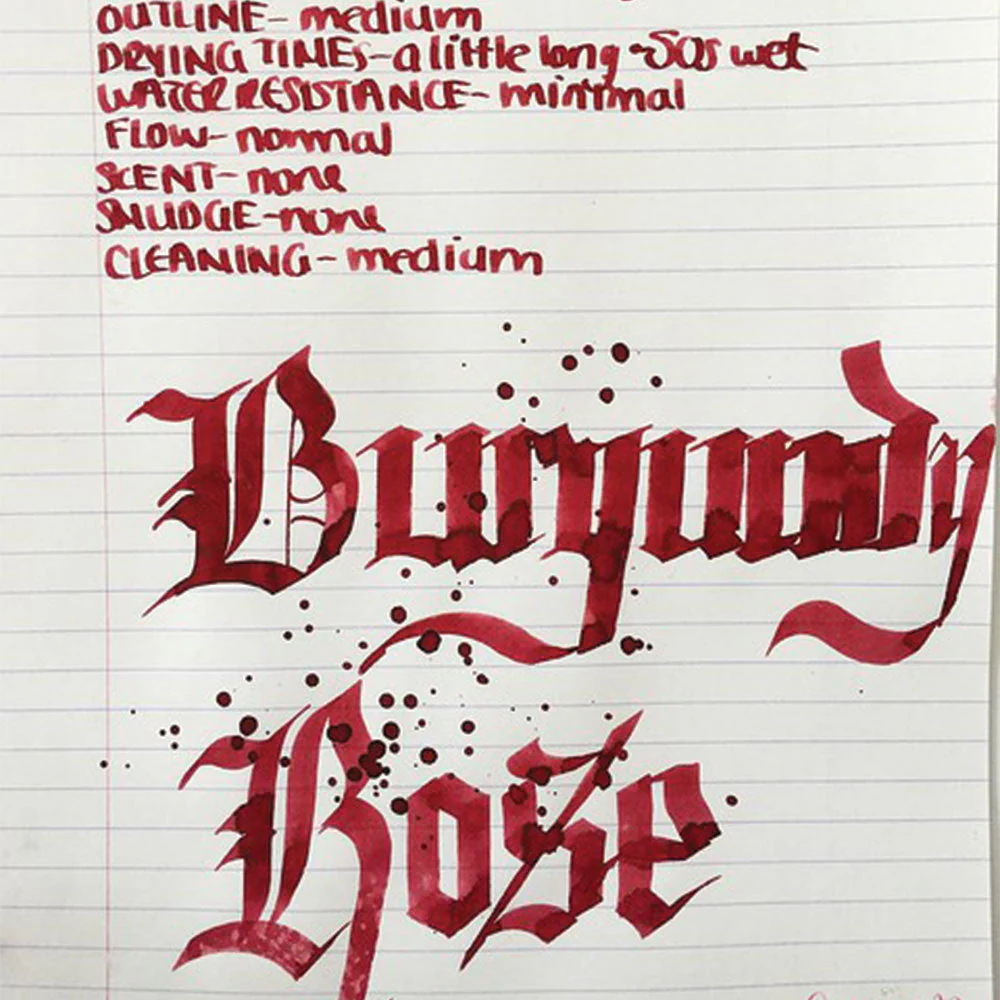 OUTLINE- medium
DRYING TIMES- a little long ~50s wet
WATER RESISTANCE- minimal
FLOW- normal
SCENT- none
SMUDGE- none
CLEANING- medium
Burgundy
Rose